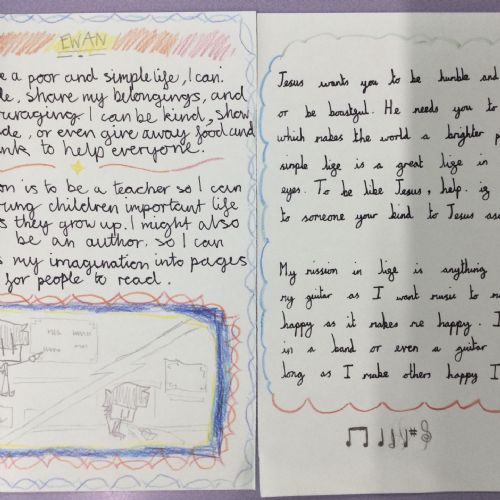 EWAN
e a poor and simple life, I can
de, share my belongings, and
uraging. I can be kind, show
de, or even give away food and
nk to help everyone.
on is to be a teacher so I can
ung children important life
s they grow up. I might also
be an author. so I can
s my imagination into pages
for people to read.
Jesus wants you to be humble and
or be boastful. He needs you to
which makes the world a brighter p
simple life is a great life in
eyes. To be like Jesus, help. if
to someone your kind to Jesus as
My mission in life is anything
my guitar as I want music to m
happy as it makes me happy. I
in a band or even a guitar
long as I make others happy I